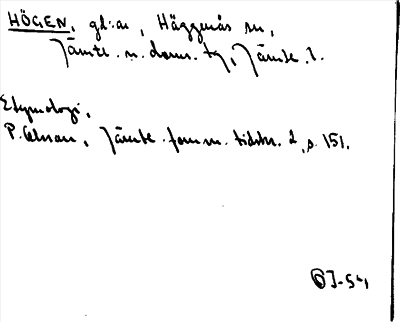 HÖGEN, gd:ar, Häggenås sn,
Jämtl. n. doms. tg, Jämtl. l.
Etymologi,
P. Olsson, Jämtl. fornm. tidskr. 2, s. 151.
OJ-54